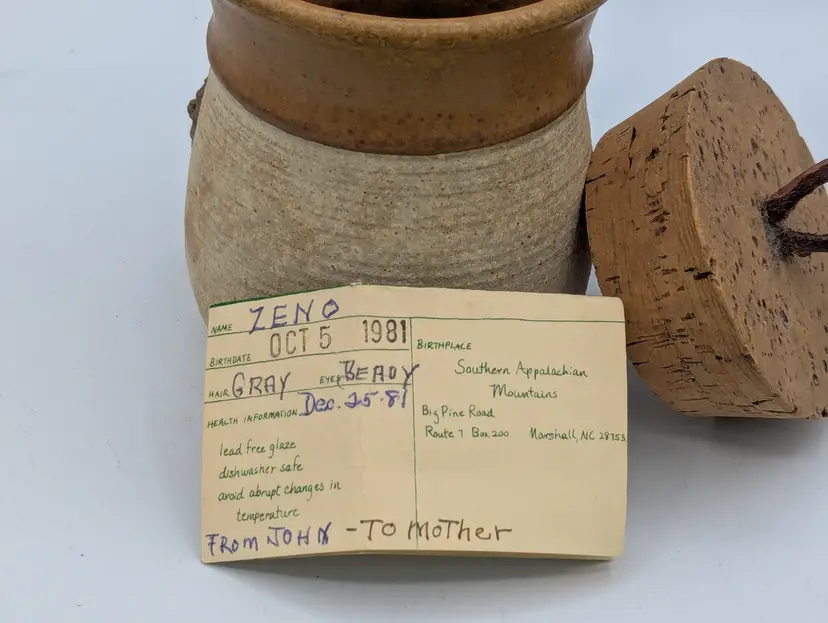 NAME ZENO
BIRTHDATE OCT 5 1981
HAIR GRAY EYES BEADY
HEALTH INFORMATION Dec. 25. 81
lead free glaze
dishwasher safe
avoid abrupt changes in
temperature
BIRTHPLACE
Southern Appalachian
Mountains
Big Pine Road
Route 7 Box 200 Marshall, NC 28753
FROM JOHN - TO MOTHER